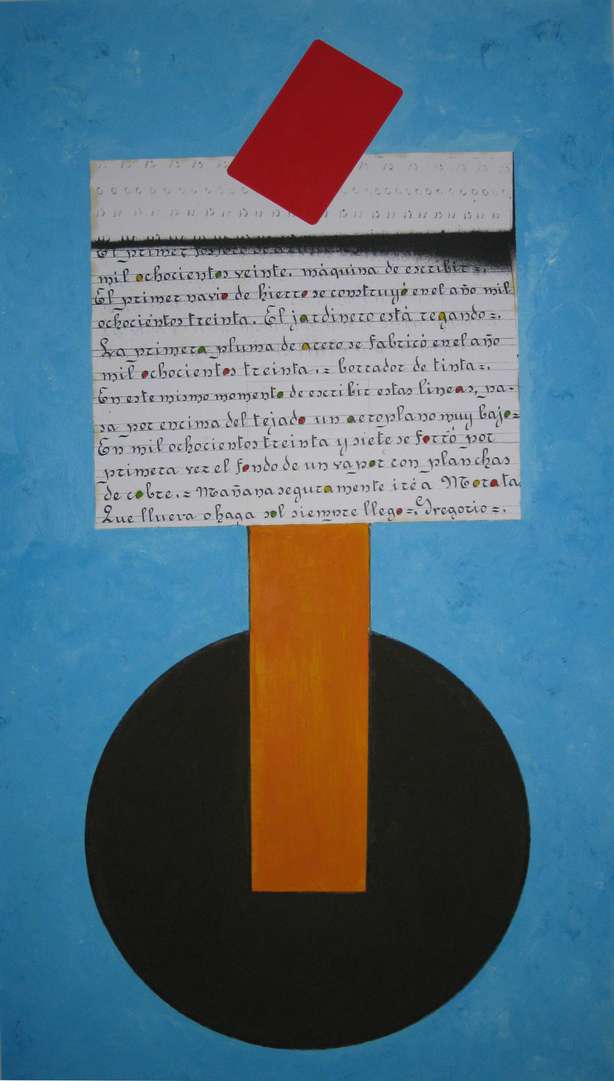 El primer
mil ochocientos veinte. máquina de escribir =.
El primer navio de hierro se construyó en el año mil
ochocientos treinta. El jardinero está regando =.
La primera pluma de acero se fabricó en el año
mil ochocientos treinta .= borrador de tinta =.
En este mismo momento de escribir estas lineas, pa-
sa por encima del tejado un aeroplano muy bajo =
En mil ochocientos treinta y siete se forró por
primera vez el fondo de un vapor con planchas
de cobre. = Mañana seguramente iré a Morata
Que llueva o haga sol siempre llego =. Gregorio =.